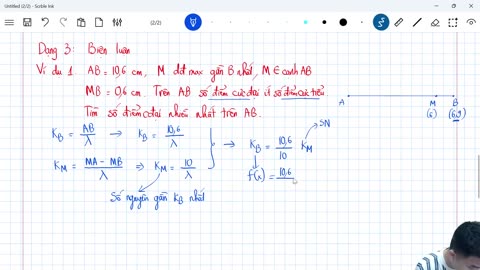 Untitled (2/2) - Scrible Ink
(2/2)
Dạng 3: Biện luận
Ví dụ 1 AB = 10,6 cm, M dđ max gần B nhất, M ∈ cạnh AB
MB = 0,6 cm. Trên AB số điểm cực đại ít số điểm cực tiểu
Tìm số điểm cđại nhiều nhất trên AB.
A M B
(6) (6,9)
K_B = AB/λ → K_B = 10,6/λ
K_M = (MA - MB)/λ ⇒ K_M = 10/λ
→ K_B = 10,6/10 K_M
SN
f(x) = 10,6
Số nguyên gần K_B nhất